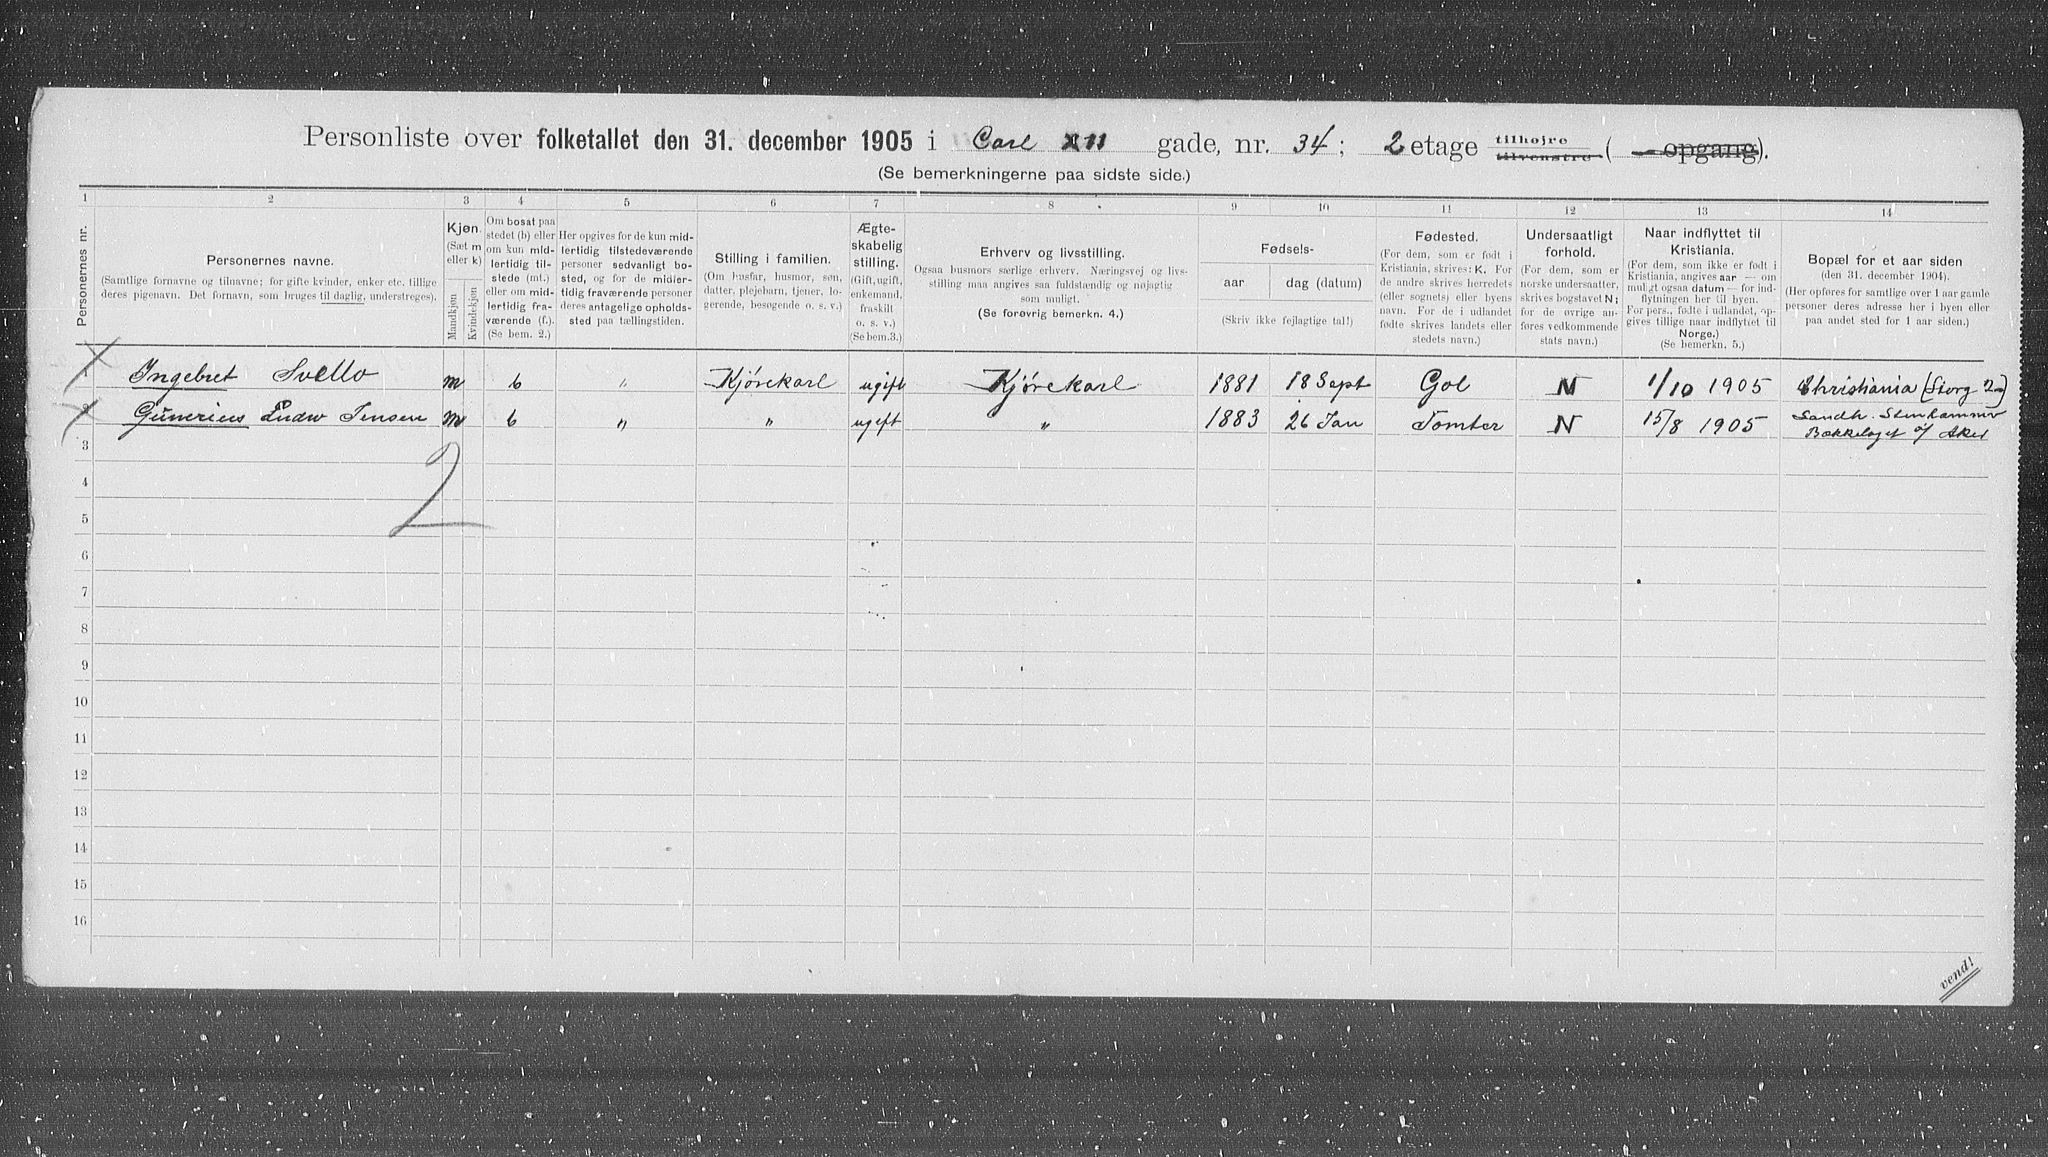 Personliste over folketallet den 31. december 1905 i Carl XII gade, nr. 34; 2 etage tilhøjre tilvenstre ( opgang).
(Se bemerkningerne paa sidste side.)
1 2 3 4 5 6 7 8 9 10 11 12 13 14
Personernes nr.
Personernes navne.
(Samtlige fornavne og tilnavne; for gifte kvinder, enker etc. tillige
deres pigenavn. Det fornavn, som bruges til daglig, understreges).
Kjøn.
(Sæt m
eller k)
Mandkjøn
Kvindekjøn
Om bosat paa
stedet (b) eller
om kun mid-
lertidig til-
stede (mt.)
eller om mid-
lertidig fra-
værende (f.).
(Se bem. 2.)
Her opgives for de kun mid-
lertidig tilstedeværende
personer sedvanligt bo-
sted, og for de midler-
tidig fraværende personer
deres antagelige opholds-
sted paa tællingstiden.
Stilling i familien.
(Om husfar, husmor, søn,
datter, plejebarn, tjener, lo-
gerende, besøgende o. s. v.)
Ægte-
skabelig
stilling.
(Gift, ugift,
enkemand,
fraskilt
o. s. v.)
(Se bem.3.)
Erhverv og livsstilling.
Ogsaa husmors særlige erhverv. Næringsvej og livs-
stilling maa angives saa fuldstændig og nøjagtig
som muligt.
(Se forøvrig bemerkn. 4.)
Fødsels-
aar dag (datum)
(Skriv ikke fejlagtige tal!)
Fødested.
(For dem, som er født i
Kristiania, skrives: K. For
de andre skrives herredets
(eller sognets) eller byens
navn. For de i udlandet
fødte skrives landets eller
stedets navn.)
Undersaatligt
forhold.
(For dem, som er
norske undersaatter,
skrives bogstavet N;
for de øvrige an-
føres vedkommende
stats navn.)
Naar indflyttet til
Kristiania.
(For dem, som ikke er født i
Kristiania, angives aar — om
muligt ogsaa datum — for ind-
flytningen her til byen.
For pers., fødte i udlandet, op-
gives tillige naar indflyttet til
Norge.)
(Se bemerkn. 5.)
Bopæl for et aar siden
(den 31. december 1904).
(Her opføres for samtlige over 1 aar gamle
personer deres adresse her i byen eller
paa andet sted for 1 aar siden.)
1 Ingebret Svello m b " Kjørekarl ugift Kjørekarl 1881 18 Sept Gol N 1/10 1905 Christiania (Storg
2 Gunerius Ludv Jensen m b " " ugift " 1883 26 Jan Tomter N 15/8 1905
Bækkelaget Aker
3
2
4
5
6
7
8
9
10
11
12
13
14
15
16
vend!